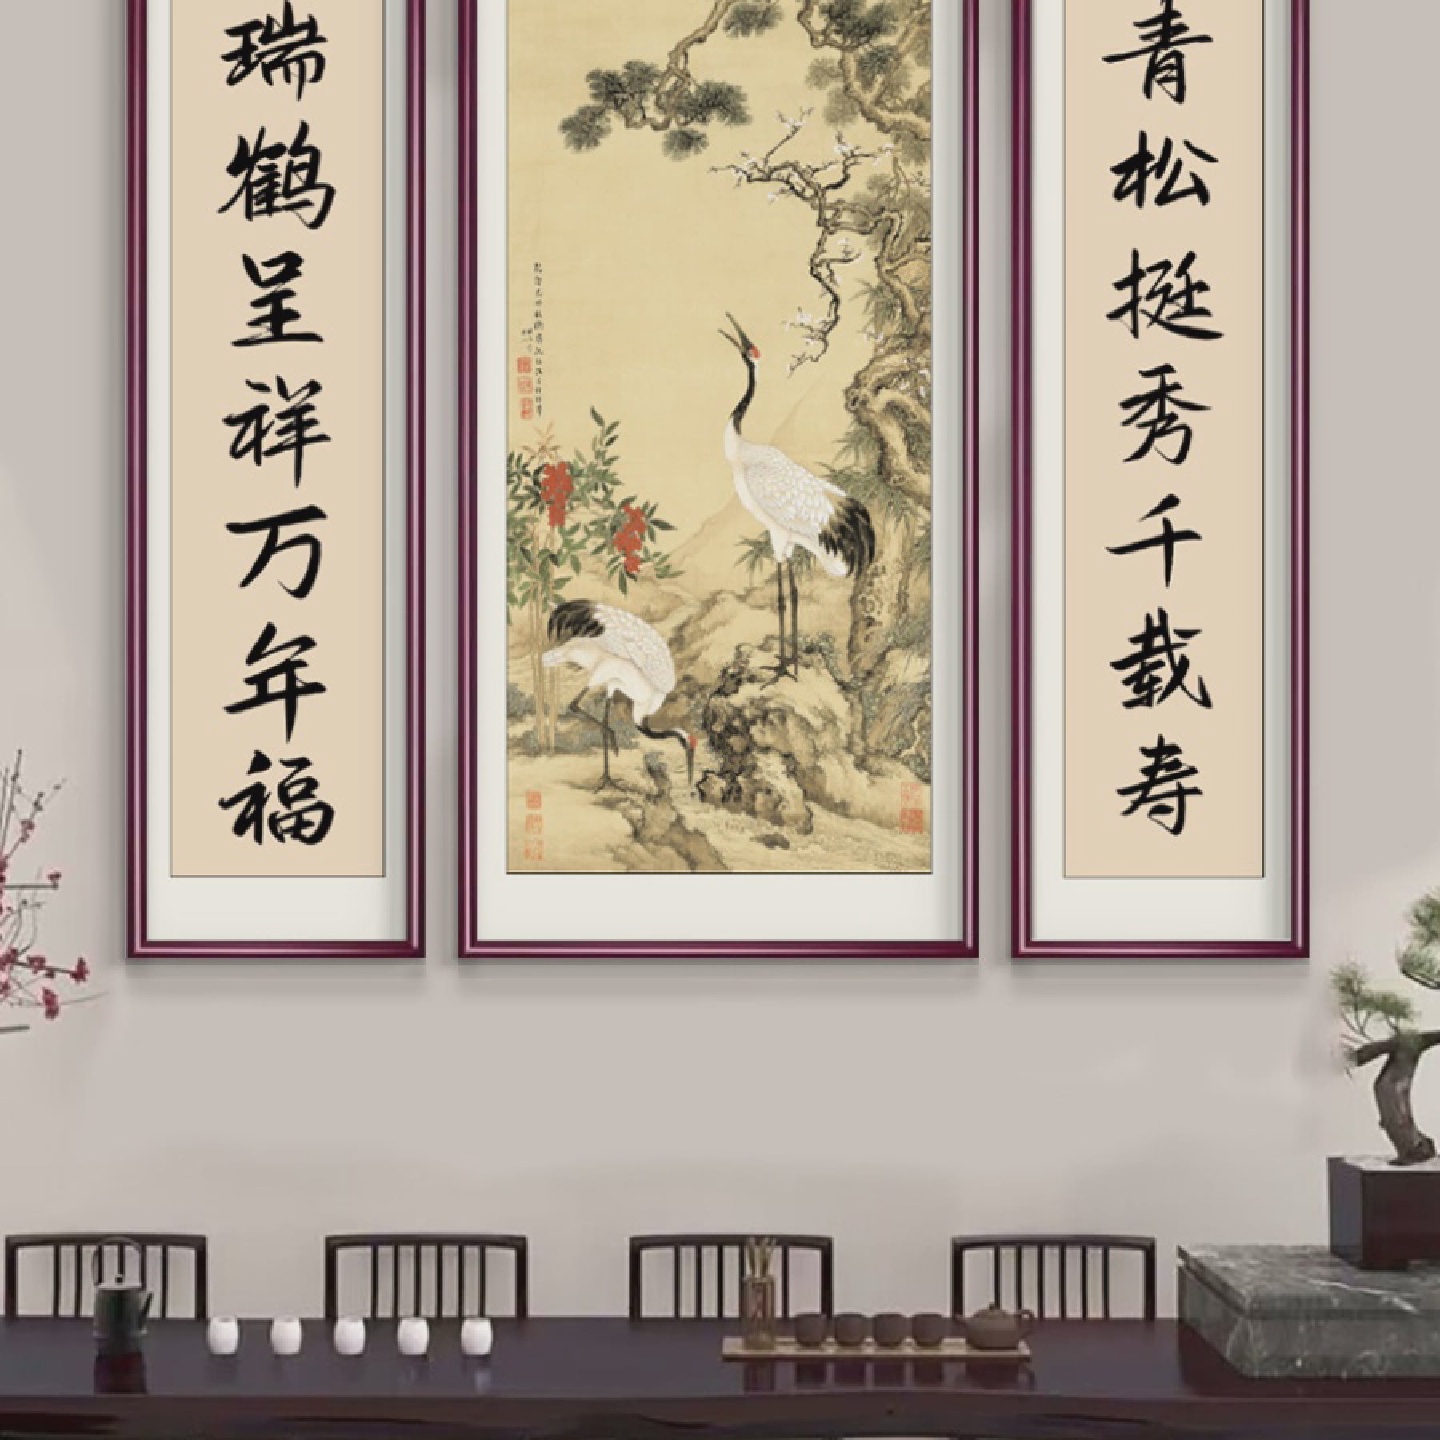 青松挺秀千载寿
瑞鹤呈祥万年福